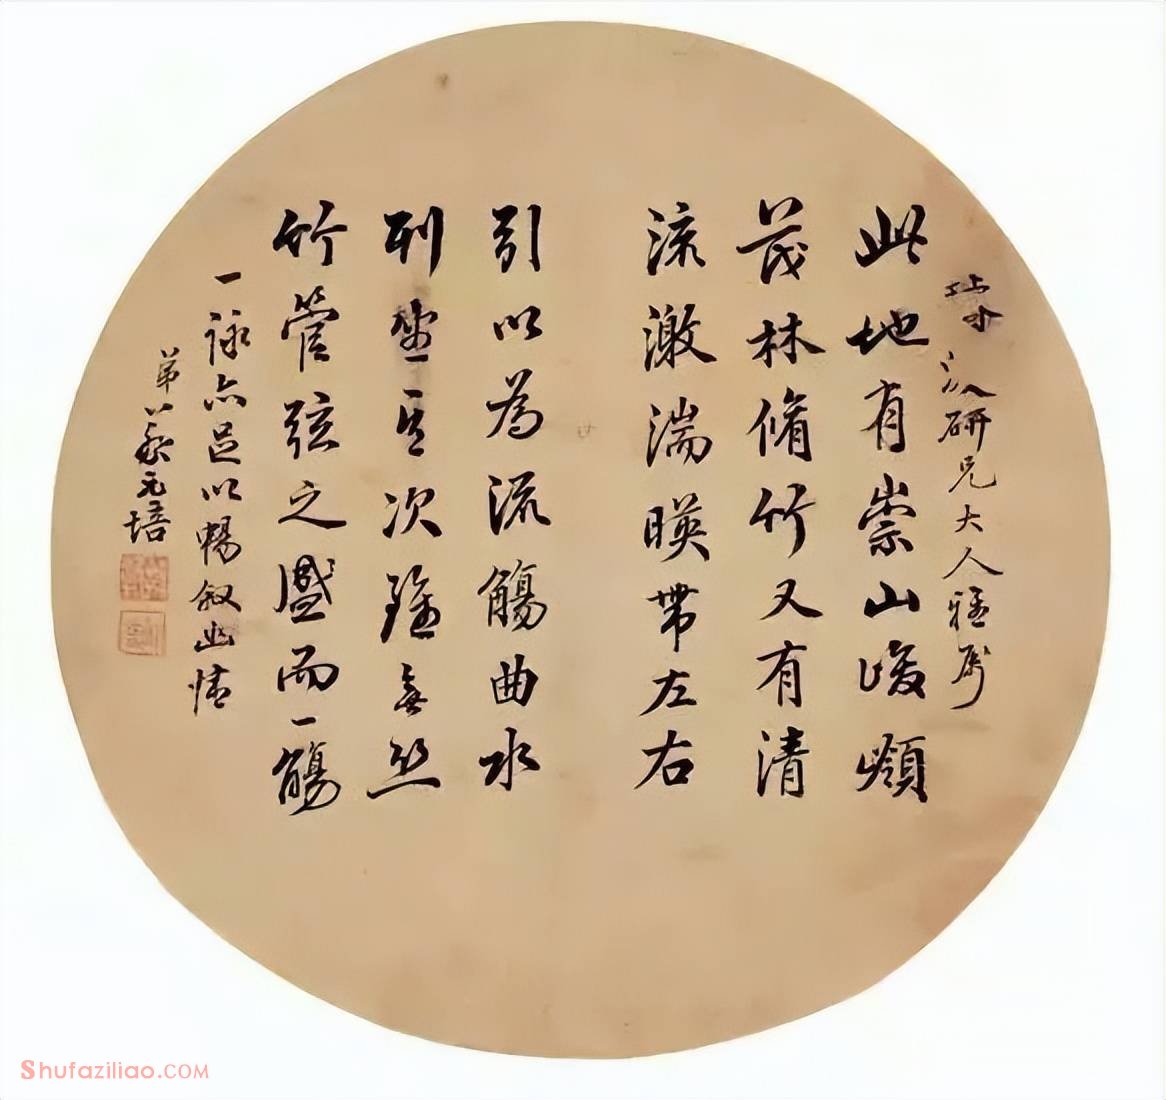 研兄大人雅屬
此地有崇山峻嶺
茂林脩竹又有清
流激湍暎帶左右
引以為流觴曲水
列坐其次雖無絲
竹管弦之盛而一觴
一詠亦足以暢叙幽情
弟蔡元培
Shufaziliao.COM